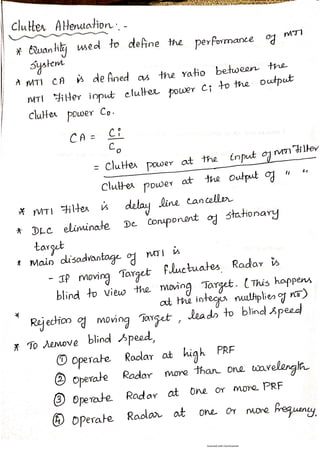 Clutter Attenuation :-
* Quantity used to define the performance of MTI
System
* MTI CA is defined as the ratio between the
MTI Filter input clutter power Ci to the output
Clutter power Co.
CA = Ci
Co
= Clutter power at the input of MTI Filter
Clutter power at the output of " "
* MTI Filter is delay line canceller
* DLC eliminate Dc component of stationary
target
* Main disadvantage of MTI is
- If moving Target fluctuates, Radar is
blind to view the moving Target. (This happens
at the integer multiples of
* Rejection of moving Target, leads to blind speed
* To remove blind speed,
① operate Radar at high PRF
② operate Radar more than one wavelength
③ operate Radar at one or more PRF
④ operate Radar at one or more frequency.
Scanned with CamScanner